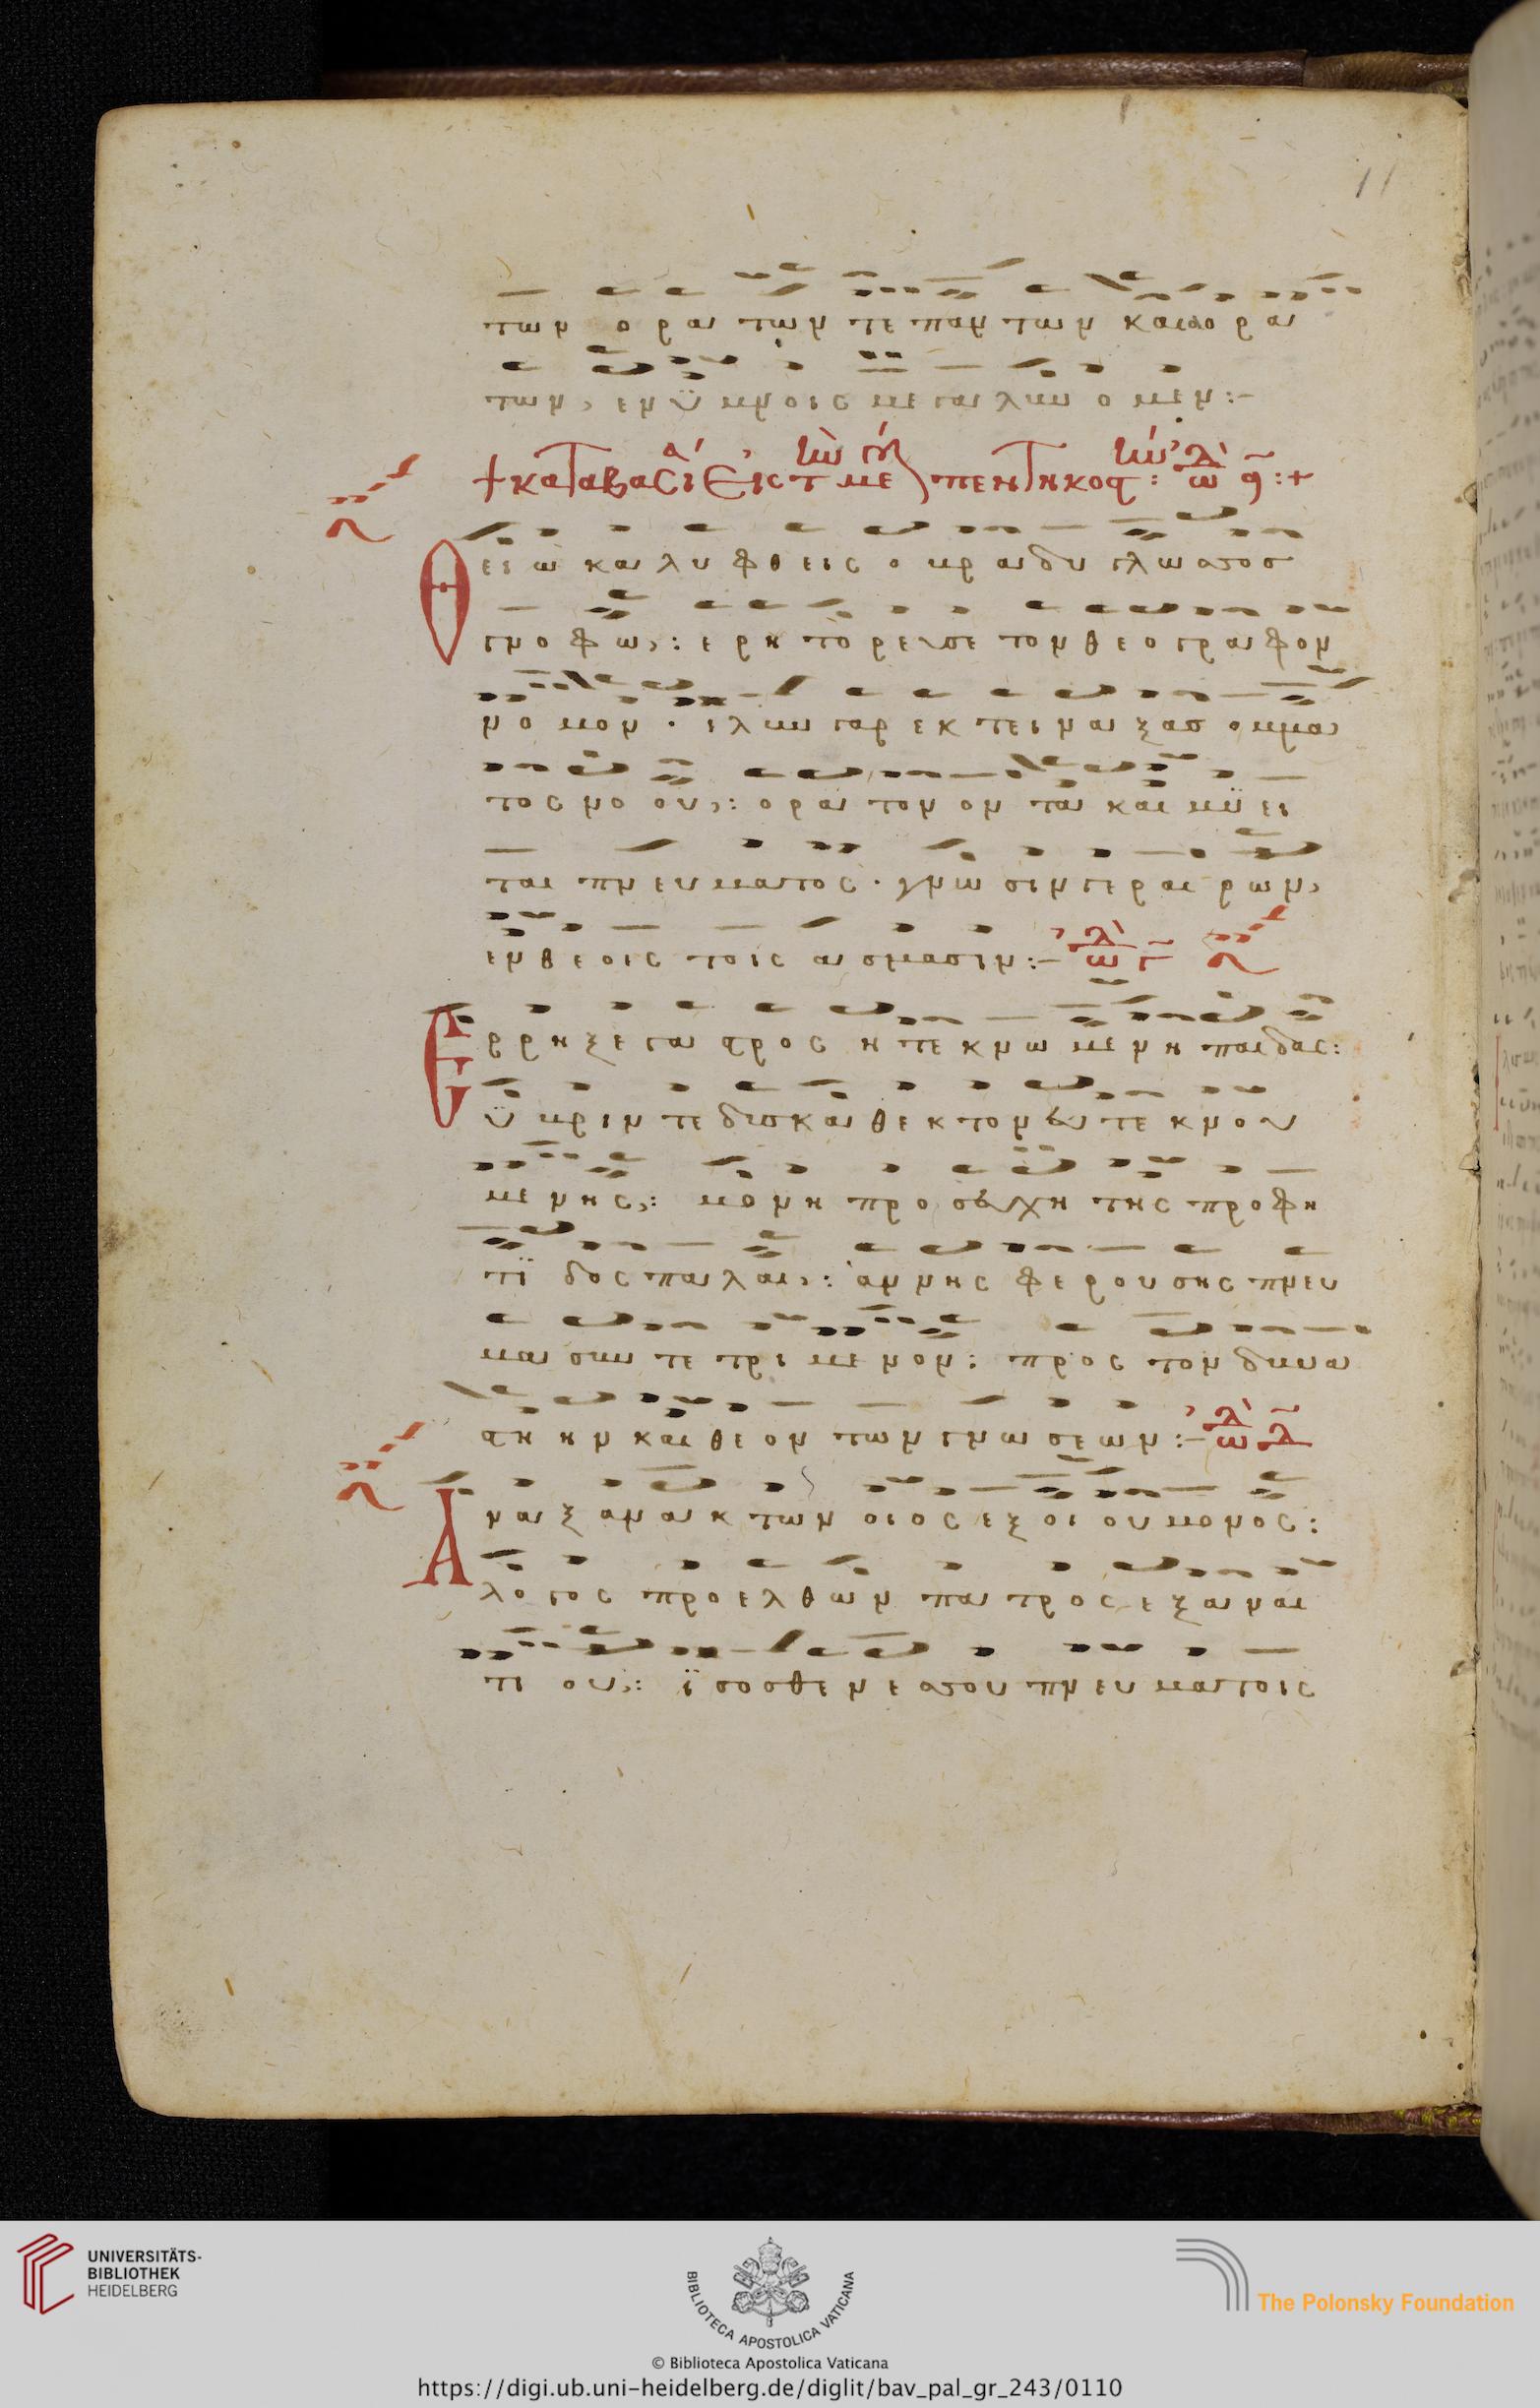 11
των ο ρα των τε παν των και αο ρα
των, εν ϋ μνοις με γα λυν ο μεν :-
+ καταβασι εις τ με πεντηκοστ : ω α : +
Θει ω κα λυ φθεις ο βρα δυ γλωσσος
γνο φω, : ε ρη τό ρευσε τον θε ο γρα φον
νο μον · ι λυν γαρ εκ τει να ξας ομμα
τος νο ου, : ο ρα τον ον τα και μϋ ει
ται πν ευ ματος · γνώ σιν γε ραι ρων,
εν θε οις τοις α σμασιν :- ω γ
Ερ ρη ξε γα στρος η τε κνω με νη παι δας :
ϋ βριν τε δυσκα θε κτον ευ τε κνου
με νης, : μο νη προ σευχη της προφη
τϊ δος πα λαι, : αν νης φε ρου σης πνευ
μα συν τε τρι με νον : προς τον δυνα
στη ην και θε ον των γνω σε ων :- ω δ
Α να ξ αν α κ των οι ος εξ οι ου μονος :
λο γος προ ελ θων πα τρος ε ξ α ναι
τι ου, : ϊ σοσθε νε σσου πν ευ μα τοις
UNIVERSITÄTS-
BIBLIOTHEK
HEIDELBERG
BIBLIOTECA APOSTOLICA VATICANA
The Polonsky Foundation
© Biblioteca Apostolica Vaticana
https://digi.ub.uni-heidelberg.de/diglit/bav_pal_gr_243/0110